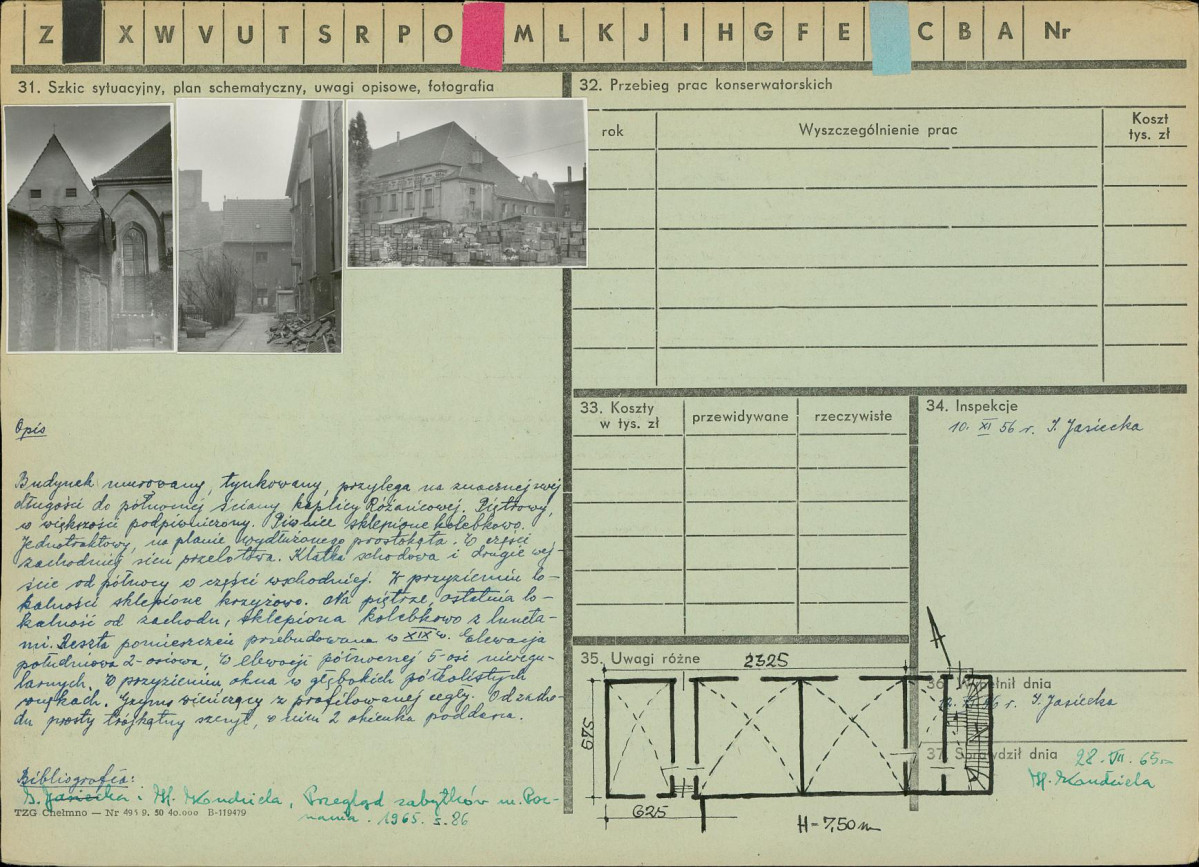 Z X W V U T S R P O M L K J I H G F E C B A Nr
31. Szkic sytuacyjny, plan schematyczny, uwagi opisowe, fotografia
Opis
Budynek murowany, tynkowany, przylega na znacznej swej
długości do północnej ściany kaplicy Różańcowej. Piętrowy,
w większości podpiwniczony. Piwnice sklepione kolebkowo.
Jednotraktowy, na planie wydłużonego prostokąta. W części
zachodniej sień przelotowa. Klatka schodowa i drugie wej-
ście od północy w części wschodniej. W przyziemiu lo-
kalności sklepione krzyżowo. Na piętrze, ostatnia lo-
kalność od zachodu, sklepiona kolebkowo z luneta-
mi. Reszta pomieszczeń przebudowana w XIX w. Elewacja
południowa 2-osiowa, W elewacji północnej 5-osi nieregu-
larnych. W przyziemiu okna w głębokich półkolistych
wnękach. Gzyms wieńczący z profilowanej cegły. Od zacho-
du prosty trójkątny szczyt, w nim 2 okienka poddasza.
Bibliografia:
Jasiecka i H. Kondziela, Przegląd zabytków m. Poz-
nania. 1965. s. 86
TZG Chełmno — Nr 495 9. 50 40.000 B-119479
32. Przebieg prac konserwatorskich
rok
Wyszczególnienie prac
Koszt
tys. zł
33. Koszty
w tys. zł
przewidywane
rzeczywiste
34. Inspekcje
10. XI 56 r. I. Jasiecka
35. Uwagi różne
2325
579
625
H-7,50 m
36. Wypełnił dnia
XI 56 r. I. Jasiecka
37. Sprawdził dnia
28. VII. 65 r
H. Kondziela